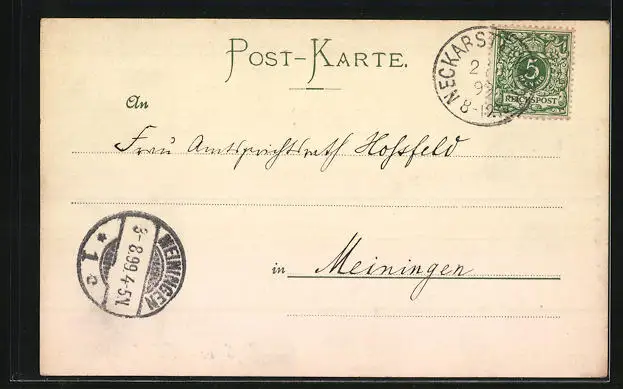 POST-KARTE.
NECKARST
2
99
8-9
5
REICHSPOST
An
Frau Amtsgerichtsrath Hossfeld
MEININGEN
3-8.99.4-5N.
* 1 c
in Meiningen